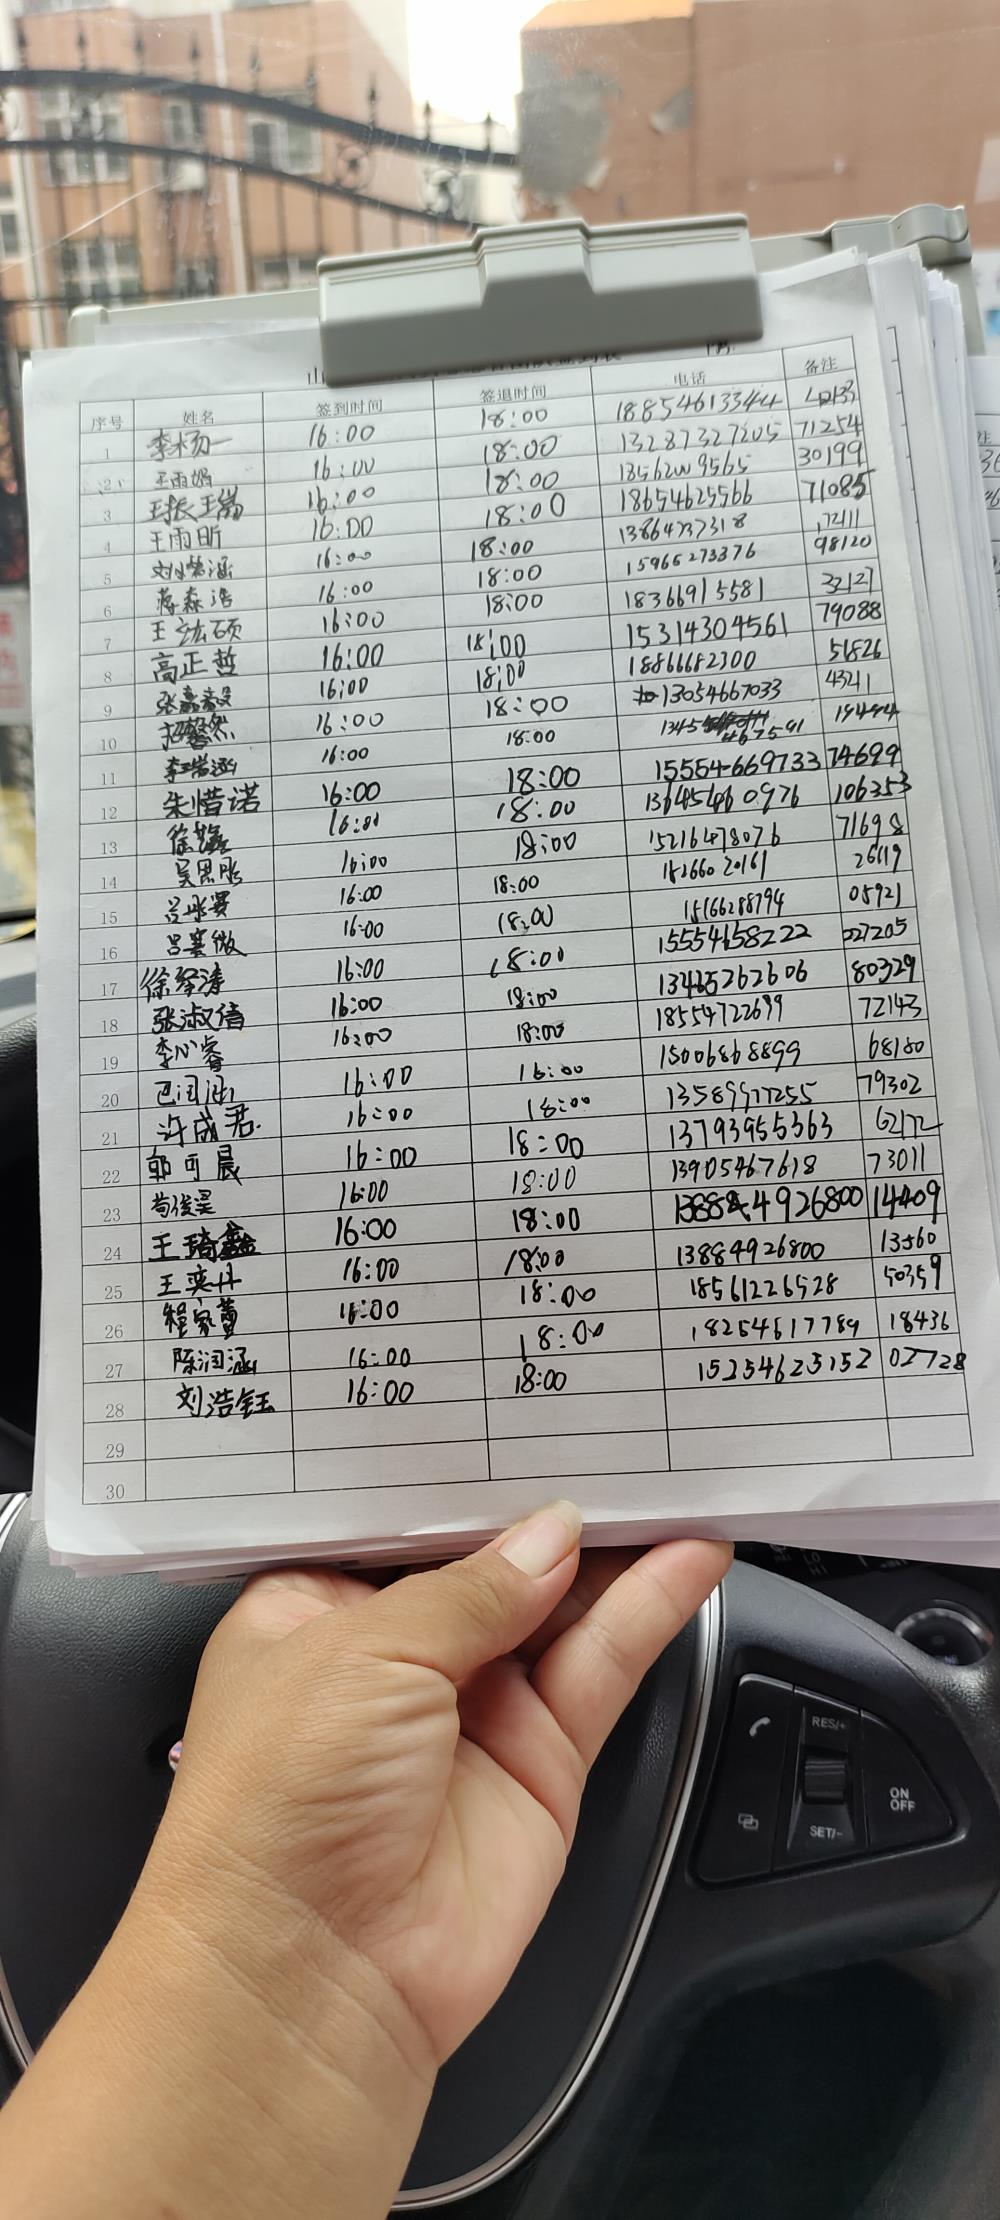 序号 姓名 签到时间 签退时间 电话 备注
1 李杨一 16:00 18:00 18854613344
2 王雨娟 16:00 18:00 13287327205 71254
3 16:00 18:00 13562009565 30199
4 王雨昕 16:00 18:00 18654625566 71085
5 16:00 18:00 13864737318 72411
6 蒋森浩 16:00 18:00 15965273376 98120
7 王竑硕 16:00 18:00 18366915581 32127
8 高正哲 16:00 18:00 15314304561 79088
9 16:00 18:00 18866682300 51826
10 16:00 18:00 13054667033 43241
11 李瑞涵 16:00 18:00
12 朱惜诺 16:00 18:00 15554669733 74699
13 16:00 18:00 106353
14 吴思彤 16:00 18:00 15216478076 71698
15 16:00 18:00 15266020161
16 吕寰微 16:00 18:00 15166288794 05921
17 16:00 18:00 15554658222 227205
18 张淑倩 16:00 18:00 13465262606 80329
19 李心睿 16:00 18:00 18554722699 72143
20 巴润涵 16:00 16:00 15006868899 68180
21 许成君 16:00 18:00 13589977255 79302
22 郭可晨 16:00 18:00 13793955363 62172
23 苟俊昊 16:00 18:00 13905467618 73011
24 王琦鑫 16:00 18:00 4926800 14409
25 王奕丹 16:00 18:00 13884926800 13560
26 程家萱 16:00 18:00 18561226528 50359
27 陈润涵 16:00 18:00 18254617789 18436
28 刘浩钰 16:00 18:00 15254623152 02728
29
30
RES/+
SET/-
ON
OFF